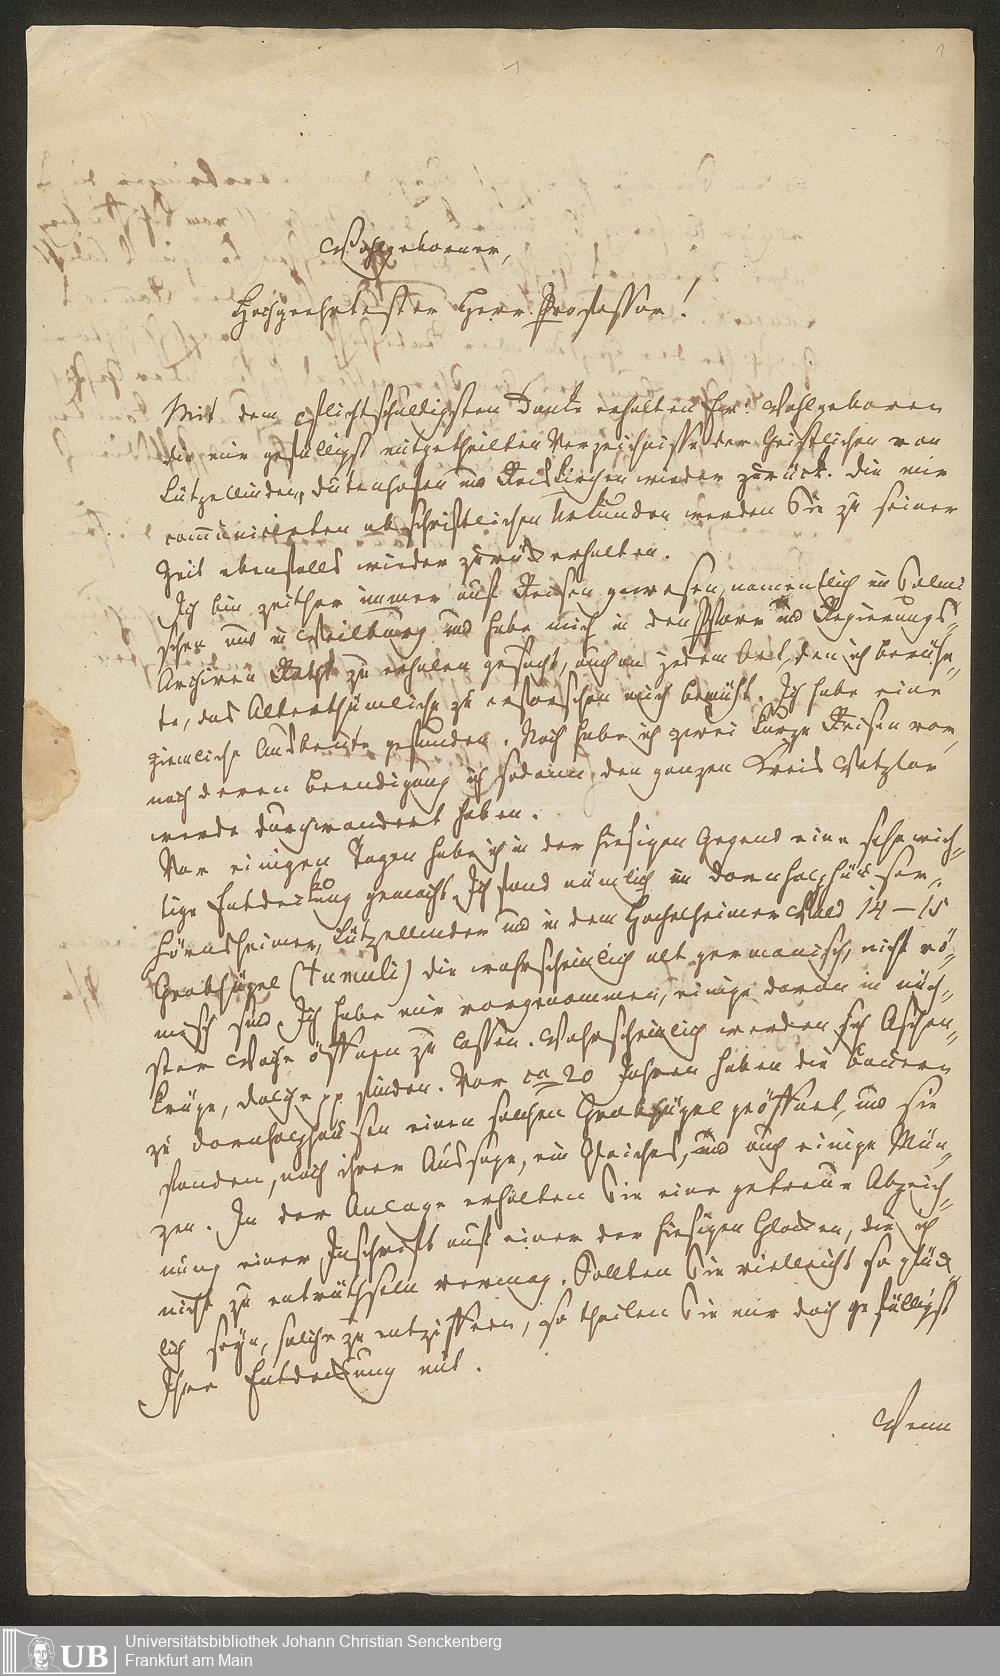 1
1
Wohlgeborner,
Hochgeehrtester Herr Professor!
Mit dem pflichtschuldigsten Danke erhalten Ew: Wohlgeboren
die mir gefälligst mitgetheilten Verzeichnisse der Geistlichen von
Lützellinden, Dutenhofen und Reiskirchen wieder zurück. Die mir
communicirten abschriftlichen Urkunden werden Sie zu seiner
Zeit ebenfalls wieder zurück erhalten.
Ich bin zeither immer auf Reisen gewesen, namentlich im Solmsi
schen und in Weilburg und habe mich in den Pfarr und Regierungs-
Archiven Raths zu erholen gesucht, auch an jedem Ort, den ich berühr-
te, das Alterthümliche zu erforschen mich bemüht. Ich habe eine
ziemliche Ausbeute gefunden. Noch habe ich zwei kurze Reisen vor,
nach deren Beendigung ich sodann den ganzen Kreis Wetzlar
werde durchwandert haben.
Vor einigen Tagen habe ich in der hiesigen Gegend eine sehr wich-
tige Entdeckung gemacht. Ich fand nämlich im Dornholzhäuser,
Hörnsheimer, Lützellinder und in dem Hochelheimer Wald 14 – 15
Grabhügel (Tumuli) die wahrscheinlich alt germanisch, nicht rö-
misch sind. Ich habe mir vorgenommen, einige davon in näch-
ster Woche öffnen zu lassen. Wahrscheinlich werden sich Aschen-
krüge, Dolche pp finden. Vor ca 20 Jahren haben die Bauern
zu Dornholzhausen einen solchen Grabhügel geöffnet, und sie
fanden, nach ihrer Aussage, ein Gleiches, und auch einige Mün-
zen. In der Anlage erhalten Sie eine getreue Abzeich-
nung einer Inschrift auf einer der hiesigen Glocken, die ich
nicht zu enträthseln vermag. Sollten Sie vielleicht so glück
lich seyn, solche zu entziffern, so theilen Sie mir doch gefälligst
Ihre Entdeckung mit.
Wenn
UB
Universitätsbibliothek Johann Christian Senckenberg
Frankfurt am Main